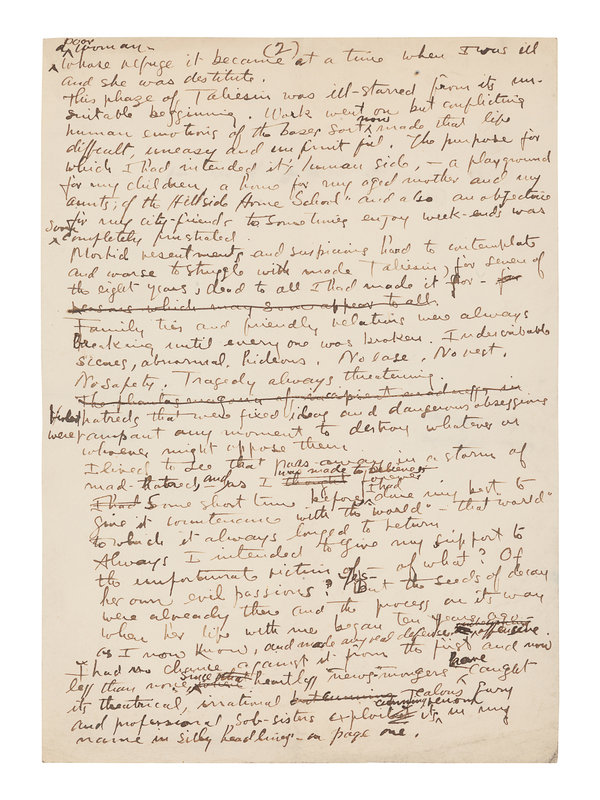 (2)
a poor woman -
Whose refuge it became at a time when I was ill
and she was destitute.
This phaze of Taliesin was ill-starred from its un-
suitable beginning. Work went on but conflicting
human emotions of the baser sort now made that life
difficult, uneasy and unfruitful. The purpose for
which I had intended it, human side, - a playground
for my children, a home for my aged mother and my
aunts, of the Hillside Home School" and also an objective
for my city-friends to sometimes enjoy week-ends was
soon completely frustrated.
Morbid resentments and suspicions hard to contemplate
and worse to struggle with made Taliesin, for seven of
the eight years, dead to all I had made it for - for
reasons which may soon appear to all.
Family ties and friendly relations were always
Breaking until every one was broken. Indescribable
scenes, abnormal, hideous. No ease. No rest.
No safety. Tragedy always threatening.
The phantasmagoria of incipient madness in
Violet hatreds that were fixed ideas and dangerous obsessions
were rampant any moment to destroy whatever or
whoever might oppose them
I lived to see that pass away in a storm of
mad-hatred, and as I thought was made to believe forever
I had Some short time before I had done my best to
give it countenance with the "world" - that "world"
to which it always longed to return
Always I intended to give my support to
the unfortunate victim of - of what? Of
her own evil passions? But the seeds of decay
were already there and the process on its way
when her life with me began ten years ago -
as I now know, and made any real defense offensive.
I had no chance against it from the first and now
less than now. since that heartless news-mongers have caught
its theatrical, irrational but cunning jealous fury
and professional sob-sisters exploited its cunning venom in my
name in silly headlines - on page one.